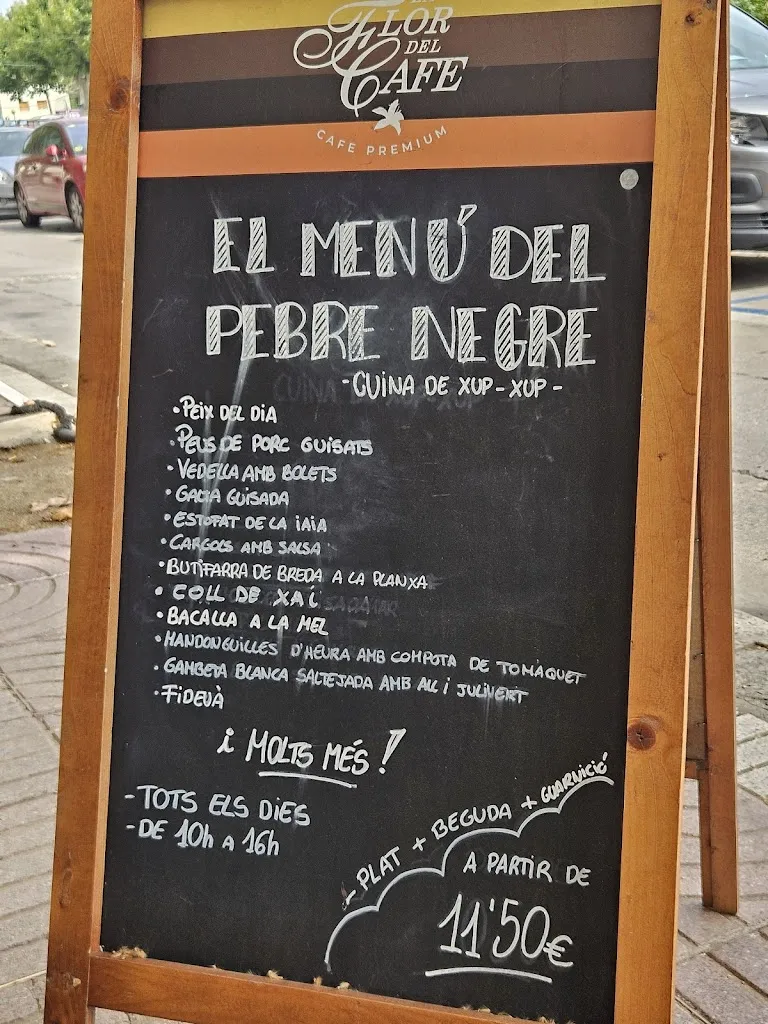 LA
FLOR
DEL
CAFE
CAFE PREMIUM
EL MENÚ DEL
PEBRE NEGRE
- CUINA DE XUP-XUP -
• PEIX DEL DIA
• PEUS DE PORC GUISATS
• VEDELLA AMB BOLETS
• GALTA GUISADA
• ESTOFAT DE LA IAIA
• CARGOLS AMB SALSA
• BUTIFARRA DE BREDA A LA PLANXA
• COLL DE XAI
• BACALLA A LA MEL
• MANDONGUILLES D'HEURA AMB COMPOTA DE TOMÀQUET
• GAMBETA BLANCA SALTEJADA AMB ALL I JULIVERT
• FIDEUÀ
i MOLTS MÉS!
- TOTS ELS DIES
- DE 10h A 16h
- PLAT + BEGUDA + GUARNICIÓ
A PARTIR DE
11'50€